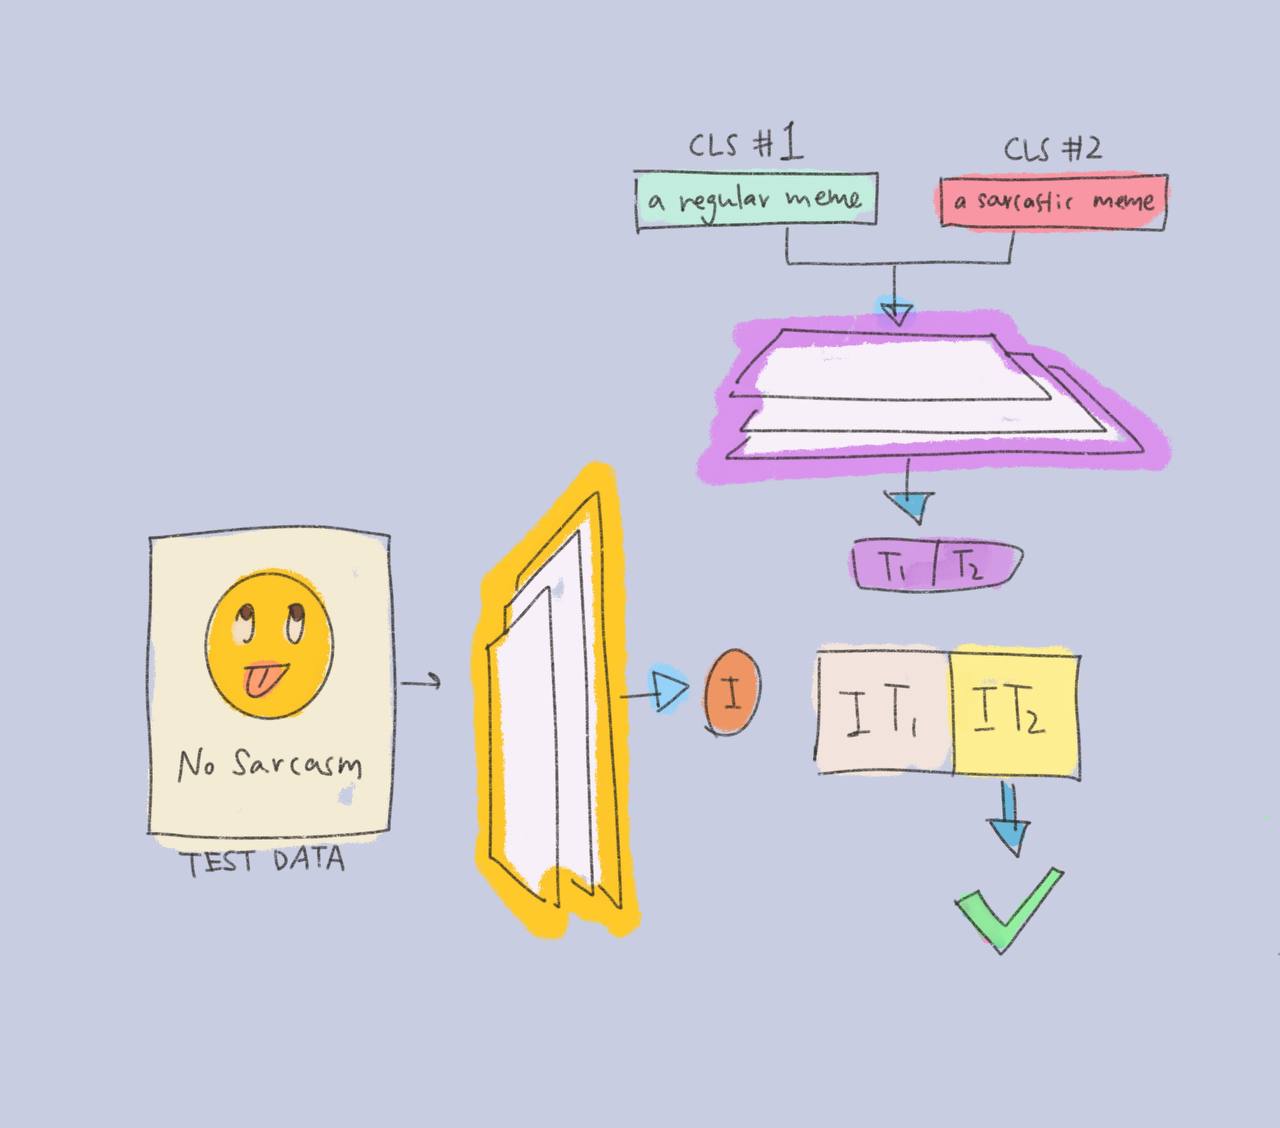 CLS #1
CLS #2
a regular meme
a sarcastic meme
T1
T2
No Sarcasm
TEST DATA
I
I T1
I T2